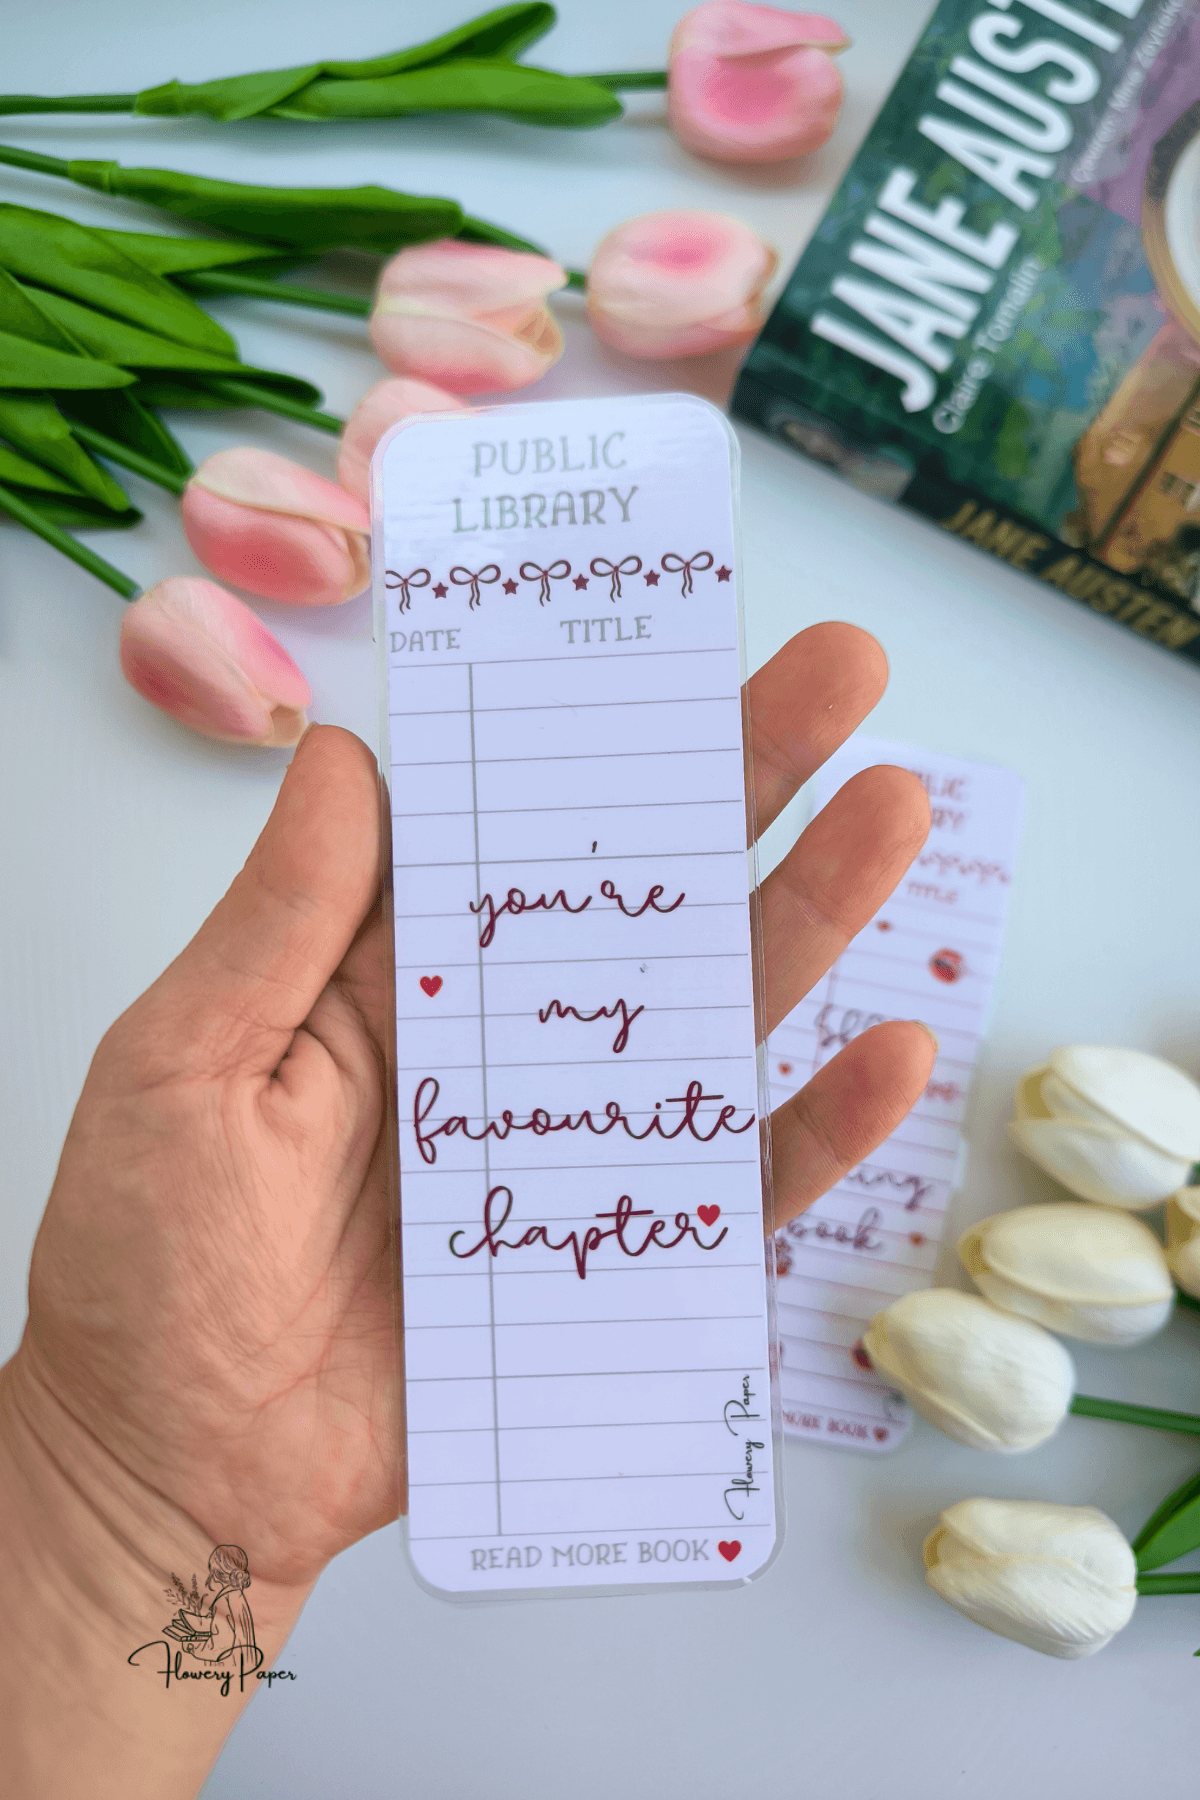 PUBLIC
LIBRARY
DATE TITLE
you're
my
favourite
chapter
Flowery Paper
READ MORE BOOK
JANE AUSTE
Claire Tomalin
JANE AUSTEN
TITLE
book
MORE BOOK
Flowery Paper